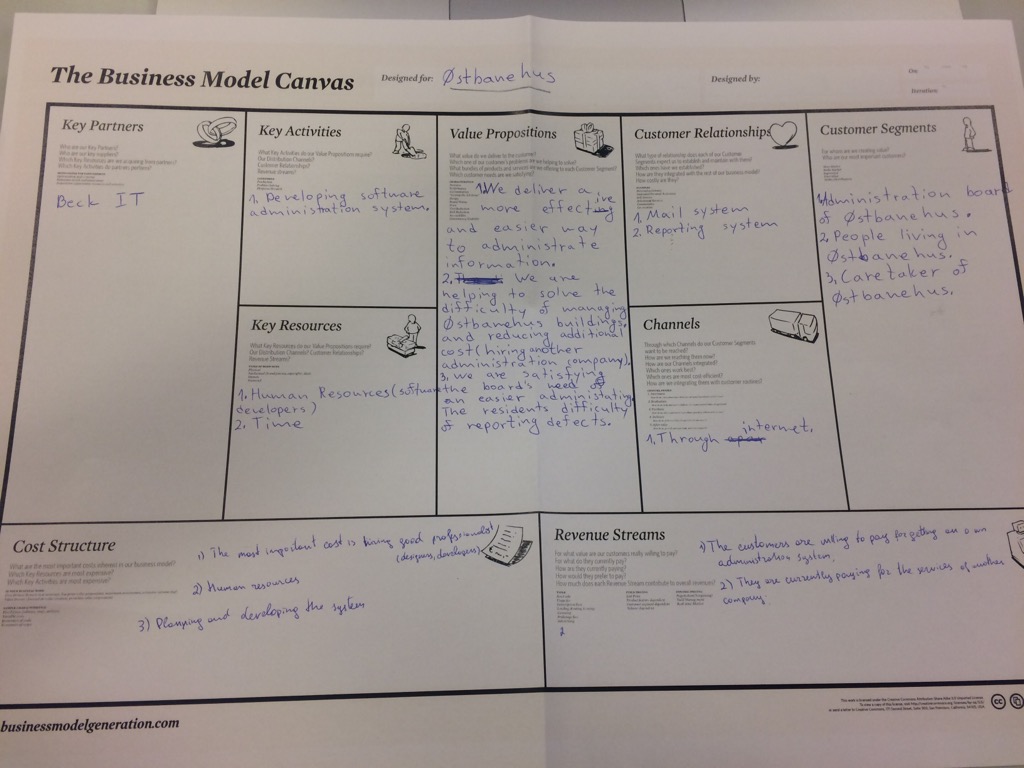 The Business Model Canvas
Designed for:
Østbanehus
Designed by:
On:
Iteration:
Key Partners
Who are our Key Partners?
Who are our key suppliers?
Which Key Resources are we acquiring from partners?
Which Key Activities do partners perform?
Beck IT
Key Activities
What Key Activities do our Value Propositions require?
Our Distribution Channels?
Customer Relationships?
Revenue streams?
1. Developing software
administation system.
Key Resources
What Key Resources do our Value Propositions require?
Our Distribution Channels? Customer Relationships?
Revenue Streams?
1. Human Resources(software
developers)
2. Time
Value Propositions
What value do we deliver to the customer?
Which one of our customer's problems are we helping to solve?
What bundles of products and services are we offering to each Customer Segment?
Which customer needs are we satisfying?
1. We deliver a
more effective
and easier way
to administrate
information.
2. We are
helping to solve the
difficulty of managing
Østbanehus buildings,
and reducing additional
cost(hiring another
administration company).
3. we are satisfying
the board's need of
an easier administating.
The residents difficulty
of reporting defects.
Customer Relationships
What type of relationship does each of our Customer
Segments expect us to establish and maintain with them?
Which ones have we established?
How are they integrated with the rest of our business model?
How costly are they?
1. Mail system
2. Reporting system
Channels
Through which Channels do our Customer Segments
want to be reached?
How are we reaching them now?
How are our Channels integrated?
Which ones work best?
Which ones are most cost-efficient?
How are we integrating them with customer routines?
1. Through internet.
Customer Segments
For whom are we creating value?
Who are our most important customers?
1. Administration board
of Østbanehus.
2. People living in
Østbanehus.
3. Caretaker of
Østbanehus.
Cost Structure
What are the most important costs inherent in our business model?
Which Key Resources are most expensive?
Which Key Activities are most expensive?
1) The most important cost is hiring good professionals
(designers, developers)
2) Human resources
3) Planning and developing the system
Revenue Streams
For what value are our customers really willing to pay?
For what do they currently pay?
How are they currently paying?
How would they prefer to pay?
How much does each Revenue Stream contribute to overall revenues?
1) The customers are willing to pay for getting an own
administration system.
2) They are currently paying for the services of another
company
2
businessmodelgeneration.com